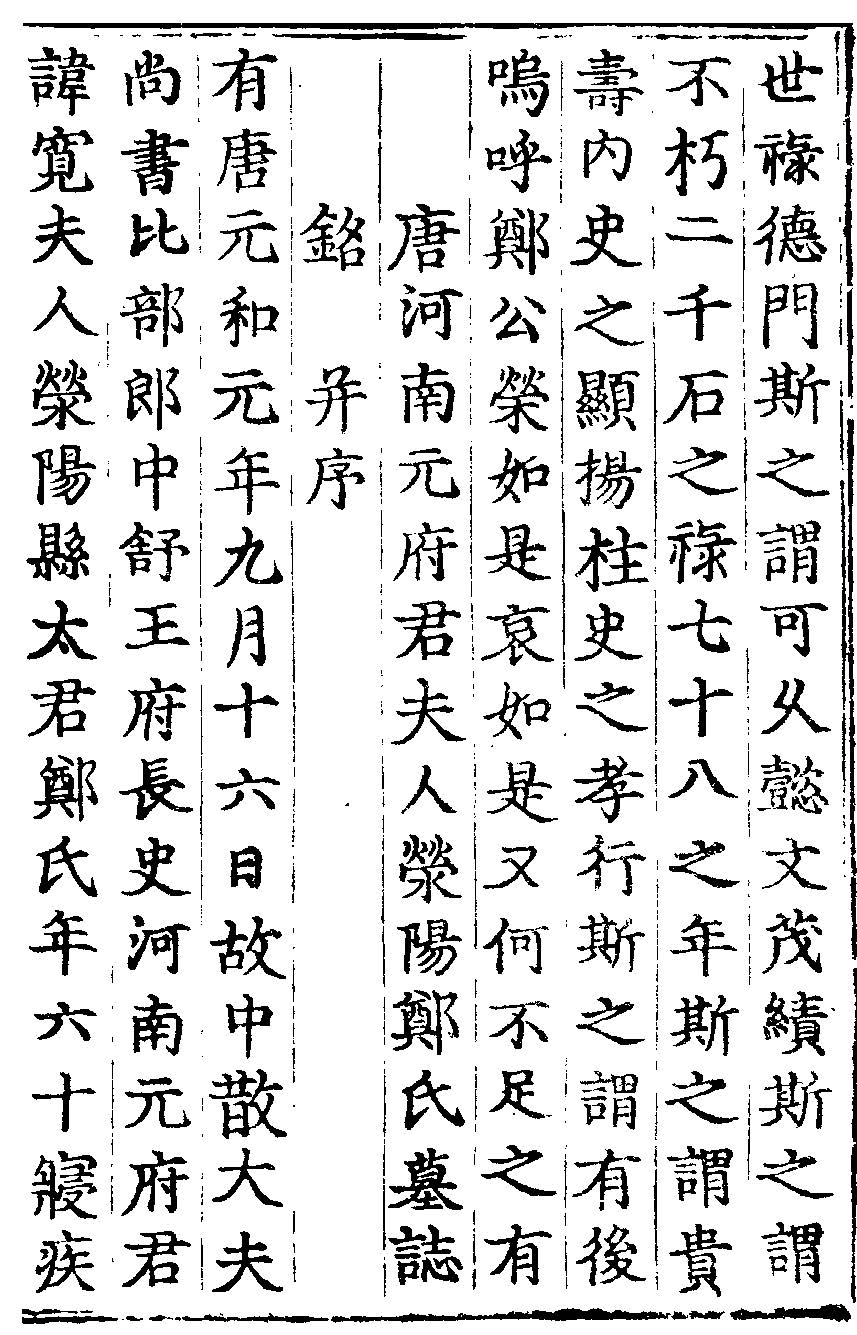 世祿德門斯之謂可久懿文茂績斯之謂
不朽二千石之祿七十八之年斯之謂貴
壽內史之顯揚柱史之孝行斯之謂有後
嗚呼鄭公榮如是哀如是又何不足之有
唐河南元府君夫人滎陽鄭氏墓誌
銘 并序
有唐元和元年九月十六日故中散大夫
尚書比部郎中舒王府長史河南元府君
諱寬夫人滎陽縣太君鄭氏年六十寢疾